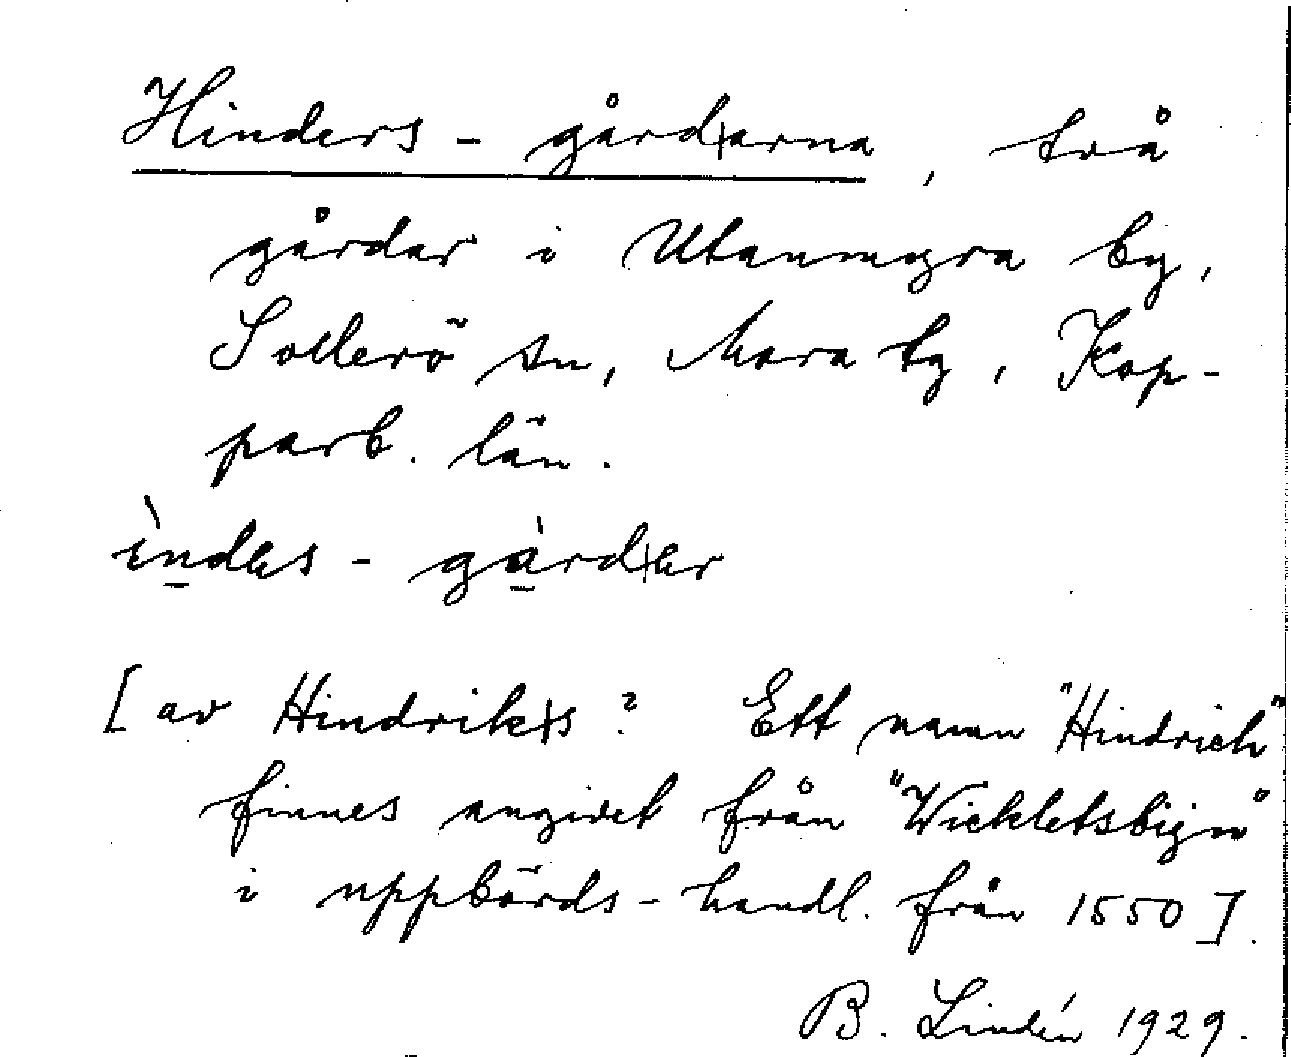 Hinders-gård|arna, två
gårdar i Utanmyra by,
Sollerö sn, Mora tg, Kop-
parb. län.
ìndes-gàrd|er
[av Hindrik|s? Ett namn "Hindrich"
finnes angivet från "Wickletsbign"
i uppbörds-handl. från 1550].
B. Lindén 1929.